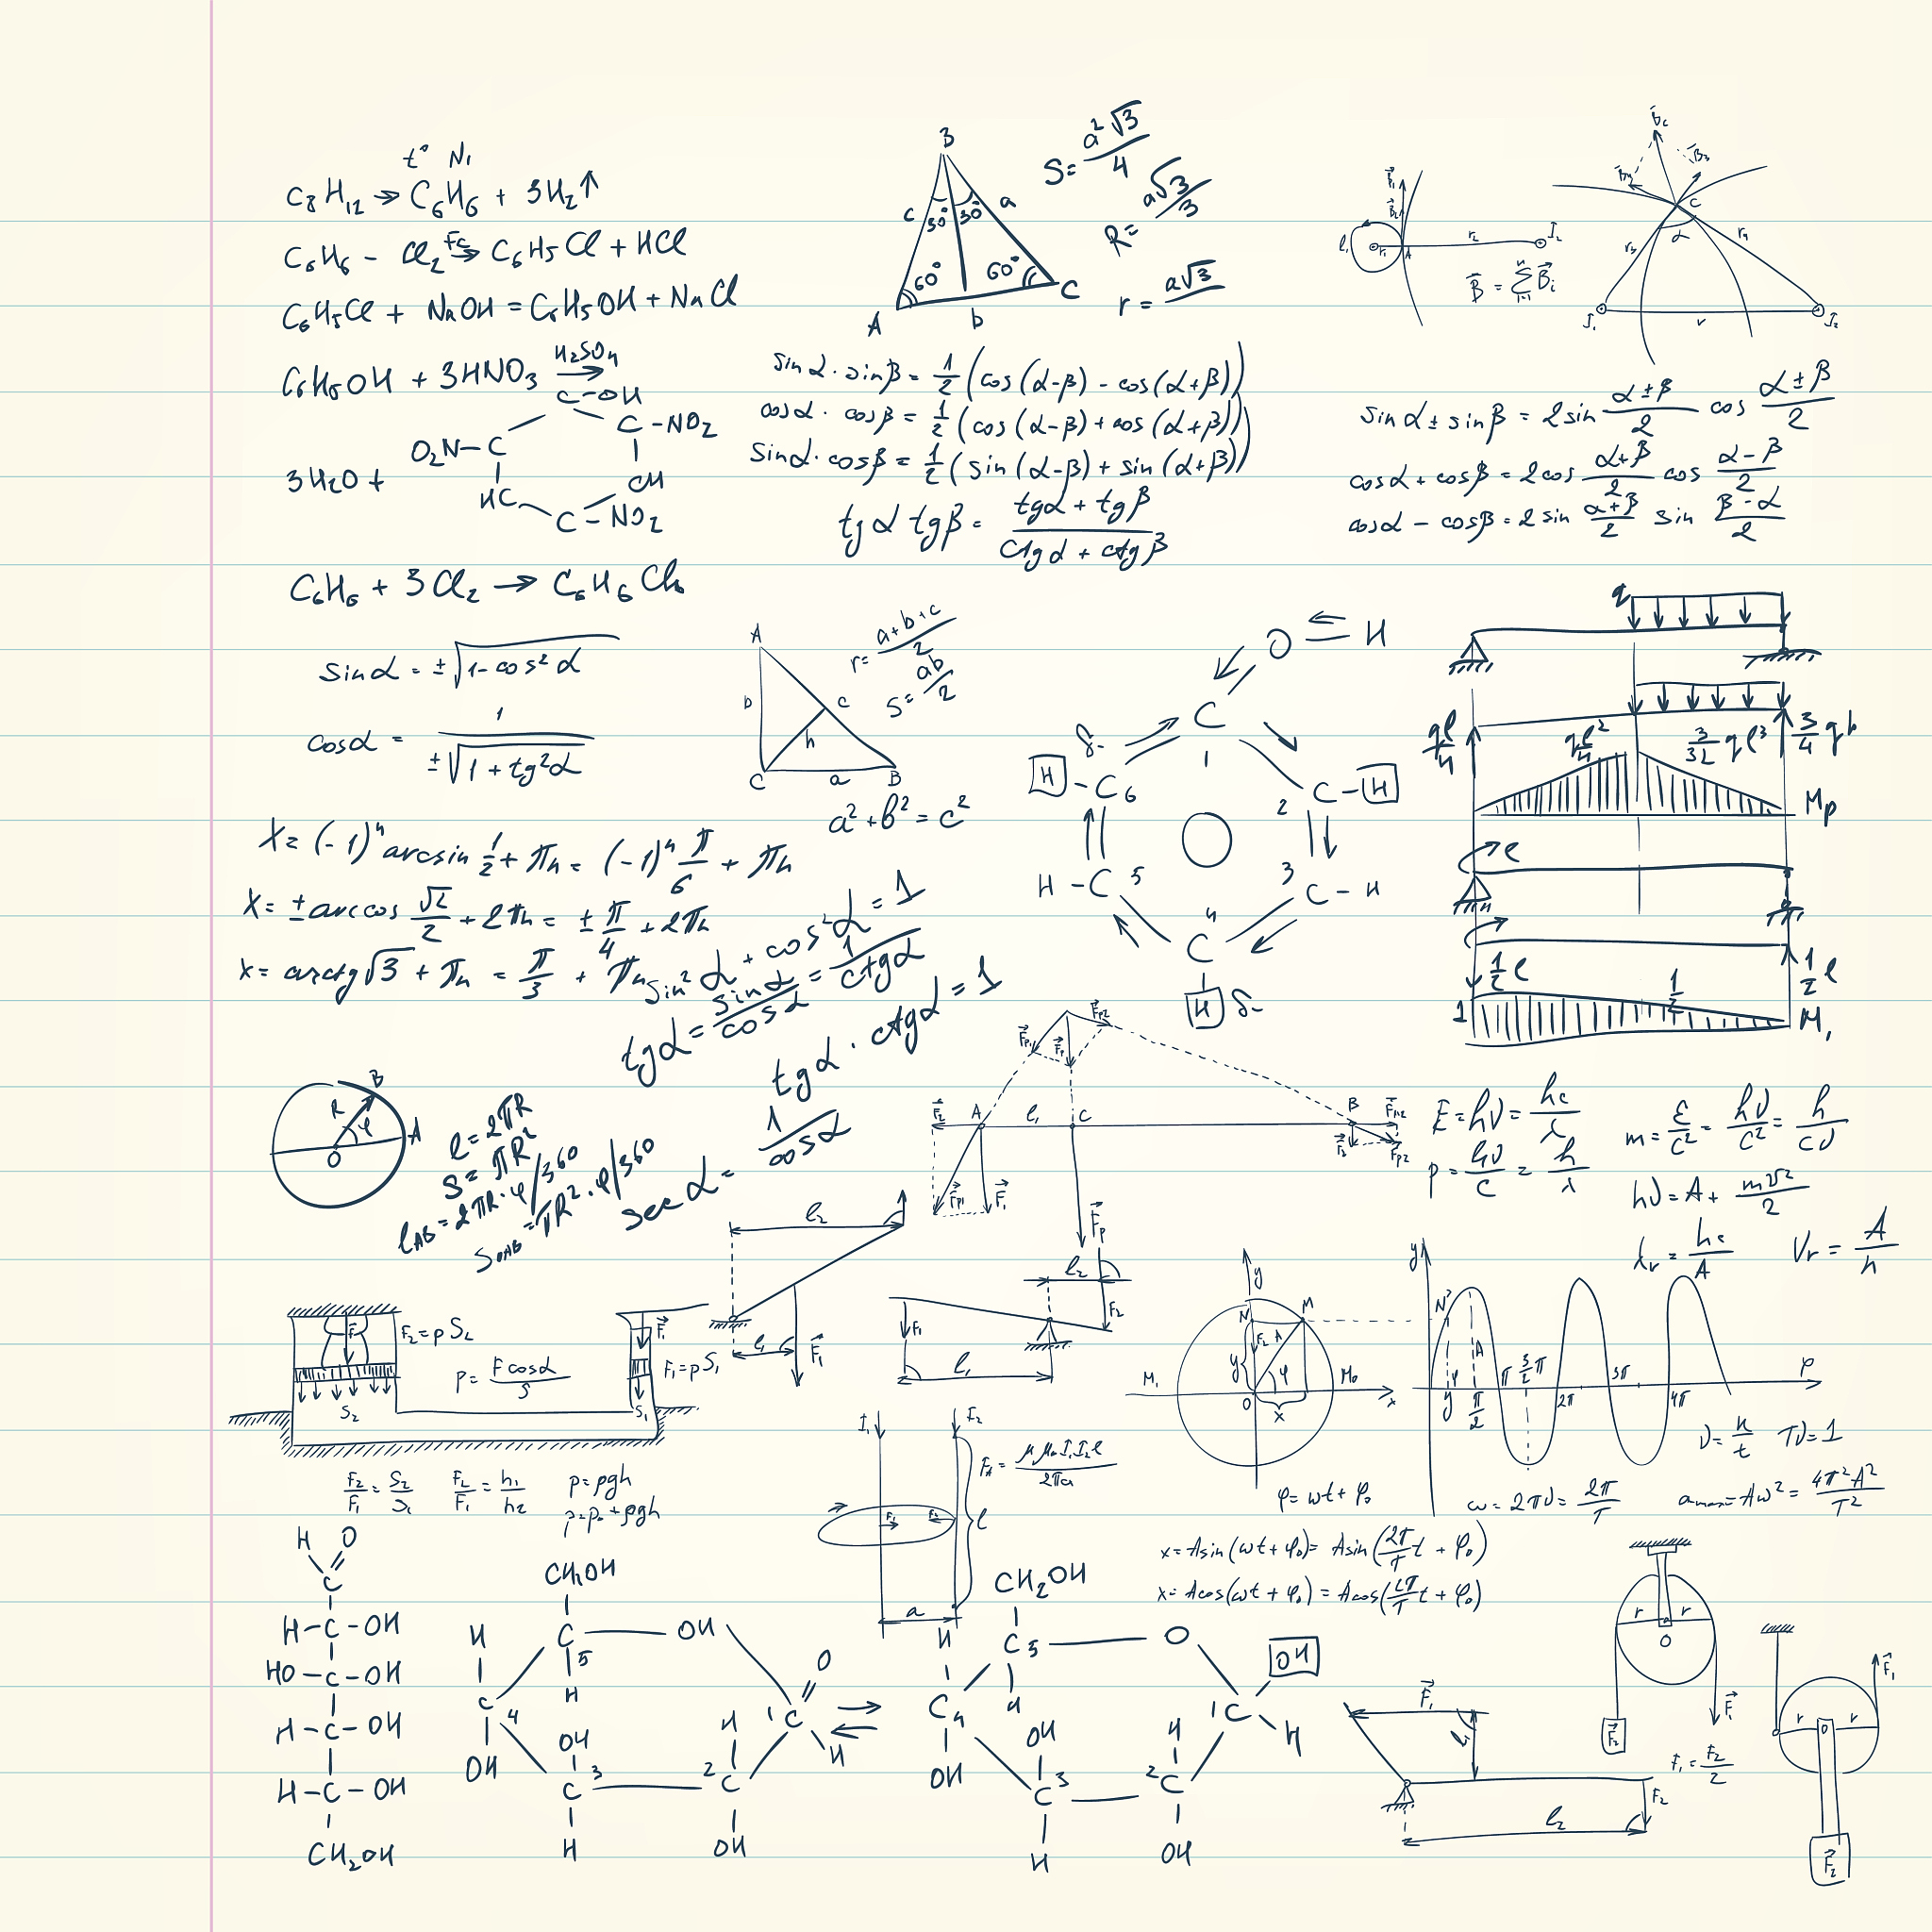 t° Ni
C₈H₁₂ → C₆H₆ + 3H₂↑
C₆H₆ - Cl₂ →Fc C₆H₅Cl + HCl
C₆H₅Cl + NaOH = C₆H₅OH + NaCl
C₆H₅OH + 3HNO₃ →H₂SO₄
C-OH
C-NO₂
O₂N-C
3H₂O +
CH
HC
C-NO₂
C₆H₆ + 3Cl₂ → C₆H₆Cl₆
B
c 30° 30° a
60° 60°
A b C
S = a²√3/4
R = a√3/3
r = a√3
r₁ A r₂ I₂
B⃗ = ΣB⃗i
B⃗c
C
α
r₃ r₄
I₁ r I₂
sinα · sinβ = 1/2 (cos(α-β) - cos(α+β))
cosα · cosβ = 1/2 (cos(α-β) + cos(α+β))
sinα · cosβ = 1/2 (sin(α-β) + sin(α+β))
tgα tgβ = (tgα + tgβ)/(ctgα + ctgβ)
sinα ± sinβ = 2sin (α±β)/2 cos (α±β)/2
cosα + cosβ = 2cos (α+β)/2 cos (α-β)/2
cosα - cosβ = 2sin (α+β)/2 sin (β-α)/2
sinα = ±√(1-cos²α)
cosα = 1/(±√(1+tg²α))
A
b c
h
C a B
r = (a+b+c)/2
S = ab/2
a² + b² = c²
O = H
C
1
δ-
H - C 6
2 C - H
H - C 5
3 C - H
4
C
H δ-
q
ql/4 ql²/4 3/32 ql³ 3/4 qb
Mp
e
1/2 e 1/2 e
1 1/2 M₁
x = (-1)ⁿ arcsin 1/2 + πn = (-1)ⁿ π/6 + πn
x = ± arccos √2/2 + 2πn = ± π/4 + 2πn
x = arcctg√3 + πn = π/3 + πn
sin²α + cos²α = 1
tgα = sinα/cosα = 1/ctgα
tgα · ctgα = 1
secα = 1/cosα
B
R φ A
O
l = 2πR
S = πR²
lAB = 2πR·φ/360
SOAB = πR²·φ/360
F⃗p1 F⃗p F⃗p2
F⃗₂ A l₁ C B
F⃗p1 F⃗₁ F⃗p F⃗p2
E = hν = hc/λ
p = hν/c = h/λ
m = ε/c² = hν/c² = h/cν
hν = A + mv²/2
λr = hc/A
Vr = A/h
l₂
l₁ F⃗₁
l₂
F₁ F₂
l₁
F⃗ F₂ = pS₂
P = Fcosα/S
F⃗₁ F₁ = pS₁
S₂ S₁
F₂/F₁ = S₂/S₁
F₂/F₁ = h₁/h₂
p = ρgh
p = p₀ + ρgh
I₁ I₂
l
a
y
N M
A
y φ
M₁ O x M₀ x
φ = ωt + φ₀
y
N'
A
φ π/2 π 3/2π 2π 3π 4π φ
ν = n/t Tν = 1
ω = 2πν = 2π/T
amax = Aω² = 4π²A²/T²
x = Asin(ωt + φ₀) = Asin(2π/T t + φ₀)
x = Acos(ωt + φ₀) = Acos(2π/T t + φ₀)
H O
C
H-C-OH
HO-C-OH
H-C-OH
H-C-OH
CH₂OH
CH₂OH
H C 5 OH
H
O
C 4 1 C
H
OH OH H
C 3 2 C
H OH
CH₂OH
H C 5 O
OH
H
C 4 1 C
H
OH OH H
C 3 2 C
H OH
F⃗₁
l₁
F₂
l₂
r r
O
F⃗₂ F⃗₁
F₁ = F₂/2
F⃗₁
r O r
F⃗₂